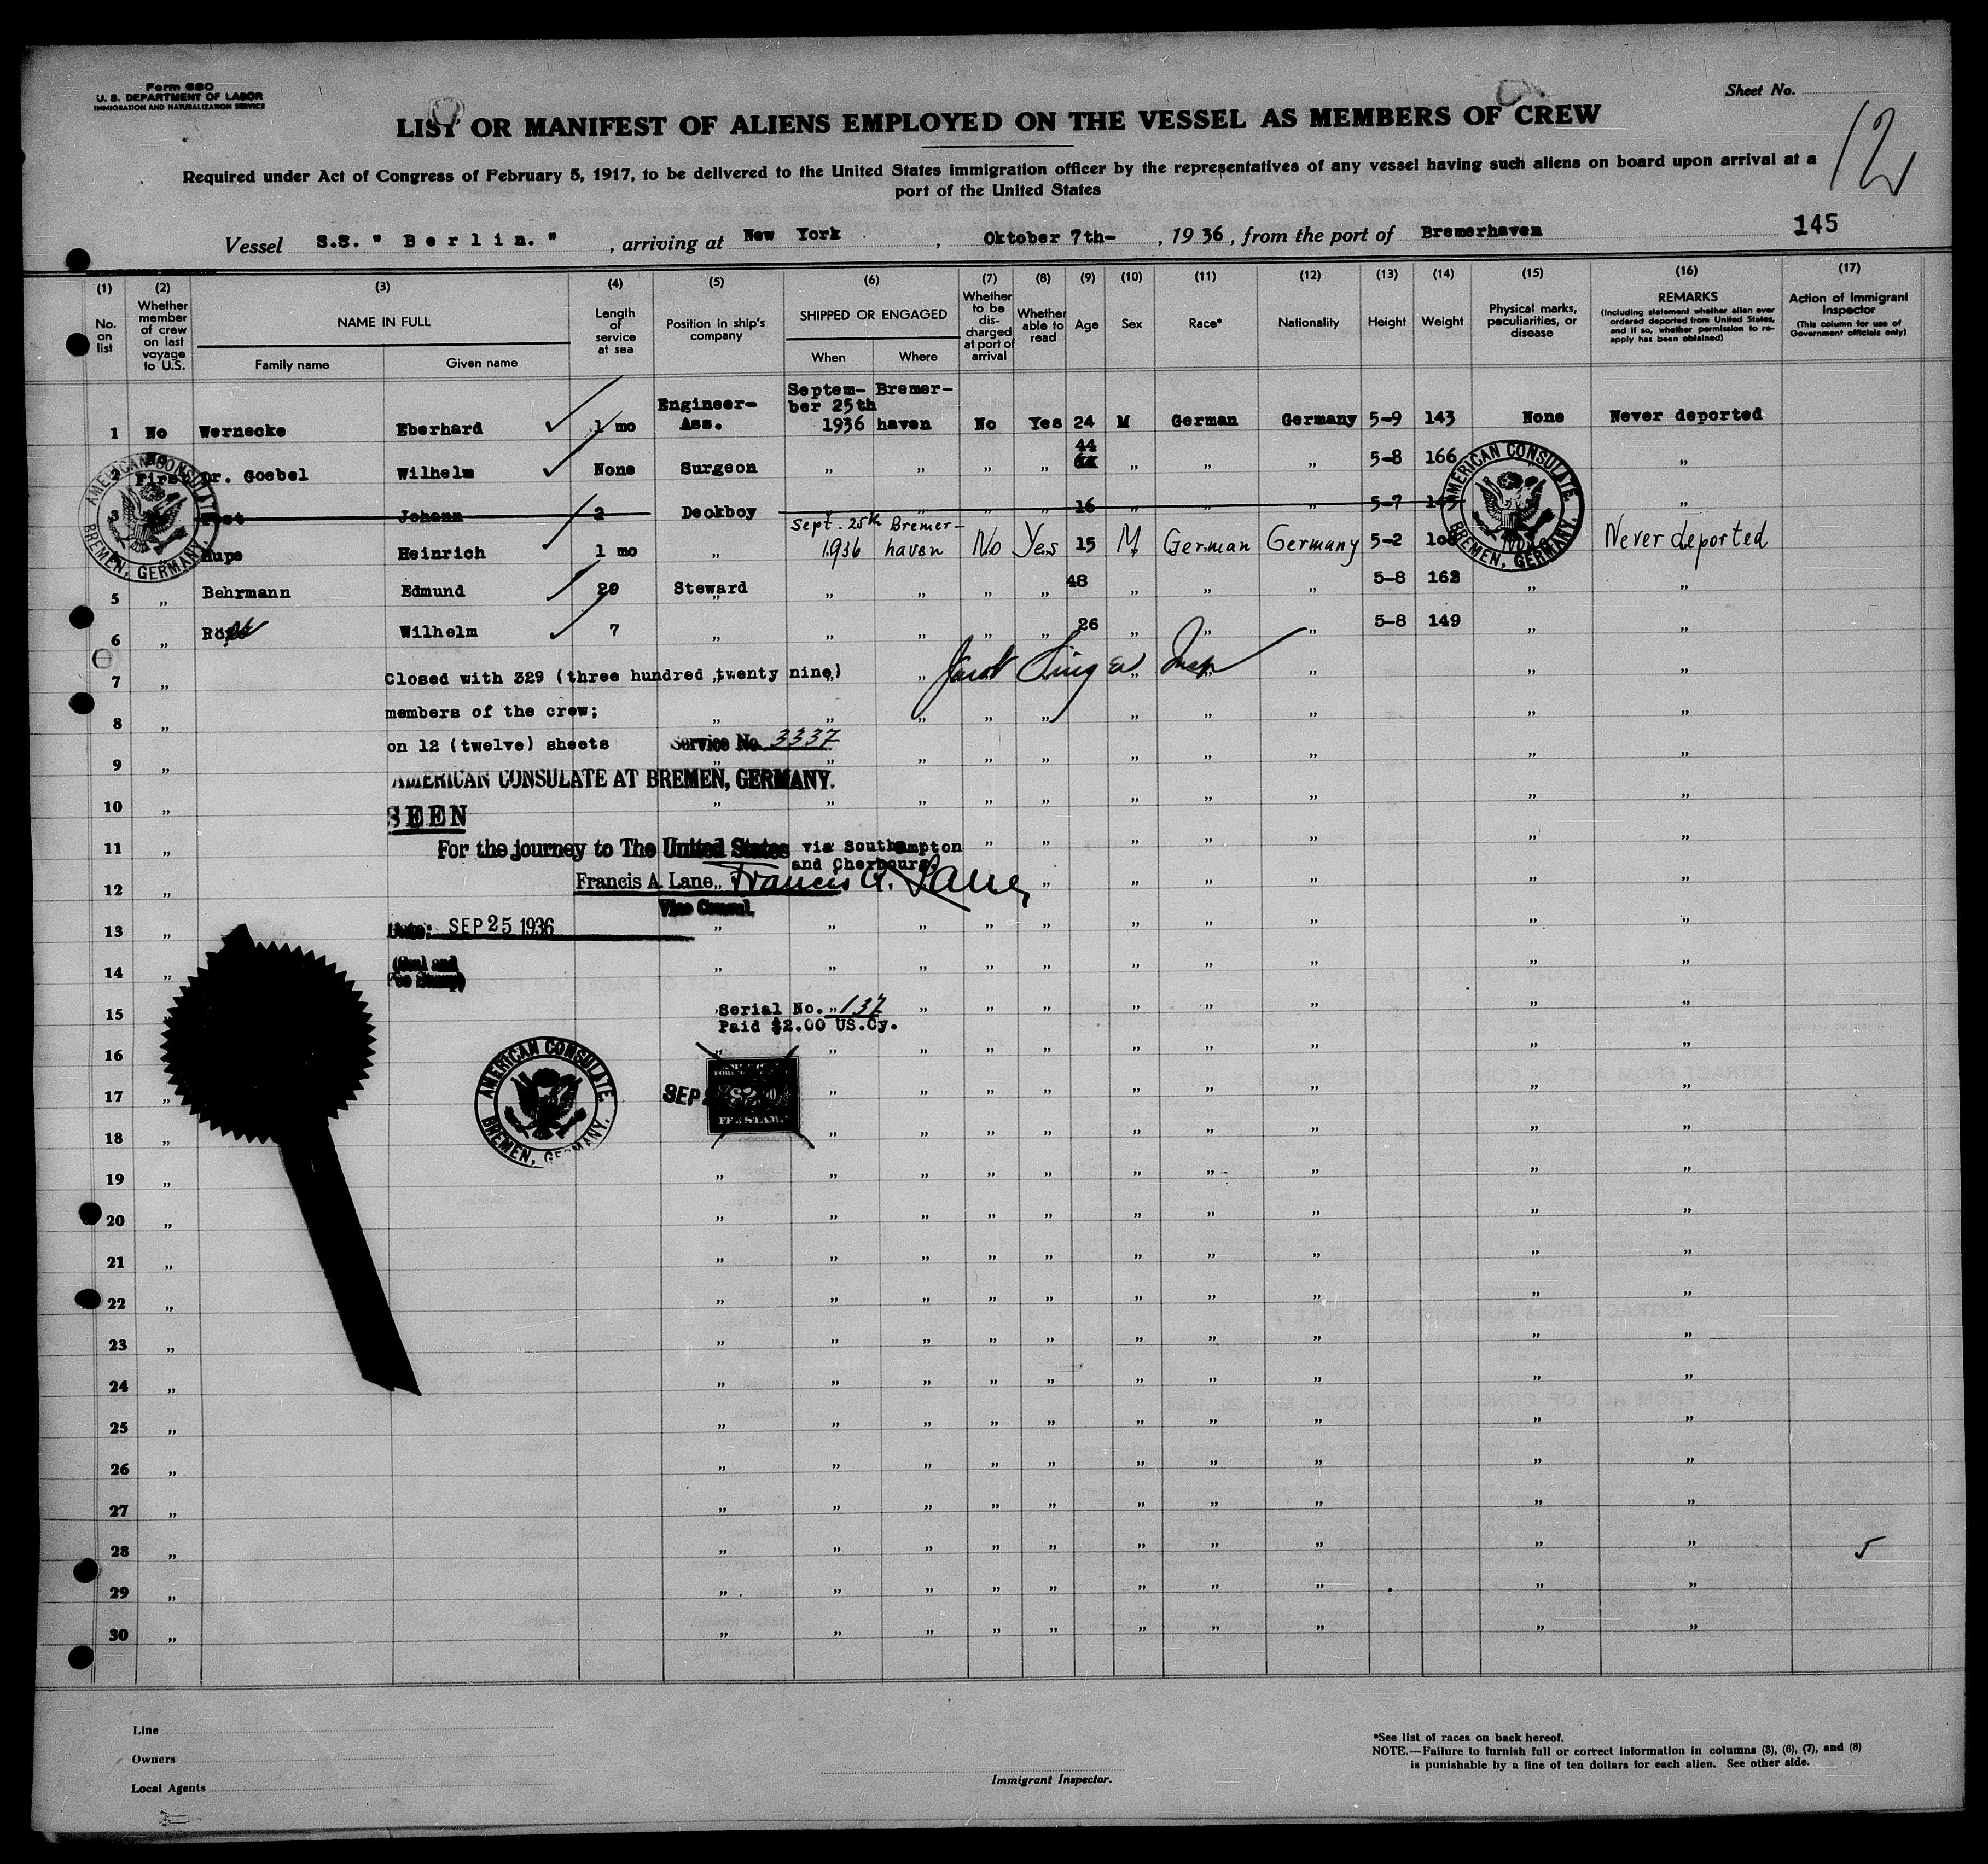 Form 680
U. S. DEPARTMENT OF LABOR
IMMIGRATION AND NATURALIZATION SERVICE
Sheet No.
12
LIST OR MANIFEST OF ALIENS EMPLOYED ON THE VESSEL AS MEMBERS OF CREW
Required under Act of Congress of February 5, 1917, to be delivered to the United States immigration officer by the representatives of any vessel having such aliens on board upon arrival at a
port of the United States
Vessel S.S. " B e r l i n. " , arriving at New York , Oktober 7th- , 1936 , from the port of Bremerhaven 145
(1) (2) (3) (4) (5) (6) (7) (8) (9) (10) (11) (12) (13) (14) (15) (16) (17)
No. on list
Whether member of crew on last voyage to U.S.
NAME IN FULL
Family name Given name
Length of service at sea
Position in ship's company
SHIPPED OR ENGAGED
When Where
Whether to be discharged at port of arrival
Whether able to read
Age
Sex
Race*
Nationality
Height
Weight
Physical marks, peculiarities, or disease
REMARKS
(Including statement whether alien ever ordered deported from United States, and if so, whether permission to re-apply has been obtained)
Action of Immigrant Inspector
(This column for use of Government officials only)
1 No Wernecke Eberhard 1 mo Engineer-Ass. Septem-ber 25th 1936 Bremer-haven No Yes 24 M German Germany 5-9 143 None Never deported
2 No First Dr. Goebel Wilhelm None Surgeon „ „ „ „ 44 „ „ „ 5-8 166 „
3 Johann 2 Deckboy „ „ „ „ 16 „ „ „ 5-7 145 „
Hupe Heinrich 1 mo „ Sept. 25th 1936 Bremer-haven No Yes 15 M German Germany 5-2 None Never deported
5 „ Behrmann Edmund 20 Steward „ „ „ „ 48 „ „ „ 5-8 162 „ „
6 „ Wilhelm 7 „ „ „ „ „ 26 „ „ „ 5-8 149 „ „
7 „ Closed with 329 (three hundred twenty nine)
8 „ members of the crew;
9 „ on 12 (twelve) sheets Service No. 3337
AMERICAN CONSULATE AT BREMEN, GERMANY.
10 „ SEEN
11 „ For the journey to The United States via Southampton
and Cherbourg.
12 „ Francis A. Lane Francis A. Lane
Vice Consul.
13 „ Date: SEP 25 1936
14 „ (Seal and
Fee Stamp)
15 Serial No. 137
Paid $2.00 US.Cy.
16
17 „ SEP
18 „
19 „
20 „
21 „
22 „
23 „
24 „
25 „
26 „
27 „
28 „ 5
29 „
30 „
AMERICAN CONSULATE
BREMEN, GERMANY.
AMERICAN CONSULATE
BREMEN, GERMANY.
AMERICAN CONSULATE
BREMEN, GERMANY.
Line
Owners
Local Agents
Immigrant Inspector.
*See list of races on back hereof.
NOTE.—Failure to furnish full or correct information in columns (3), (6), (7), and (8)
is punishable by a fine of ten dollars for each alien. See other side.